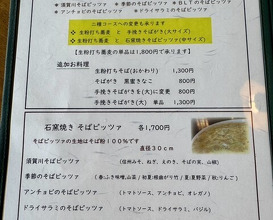 ＊須賀川そばピッツァ ＊季節のそばピッツァ ＊ＢＬＴのそばピッツァ
＊アンチョビのそばピッツァ ＊ドライサラミのそばピッツァ
二種コースへの変更も承ります
生粉打ち蕎麦 と 手挽きそばがき(大サイズ)
生粉打ち蕎麦 と 石窯焼きそばピッツァ(中サイズ)
生粉打ち蕎麦の単品は1,800円で承ります
追加お料理
生粉打ちそば(おかわり) 1,300円
そばがき 黒蜜きなこ 800円
手挽きそばがきを(大)に変更 800円
手挽きそばがき(大) 単品 1,300円
石窯焼き そばピッツァ 各1,700円
そばピッツァの生地はそば粉100%です
直径30cm
須賀川そばピッツァ (信州みそ、ねぎ、えのき、そばの実、山椒)
季節のそばピッツァ
アンチョビのそばピッツァ (トマトソース、アンチョビ、オレガノ)
ドライサラミのそばピッツァ (トマトソース、ドライサラミ、バジル)